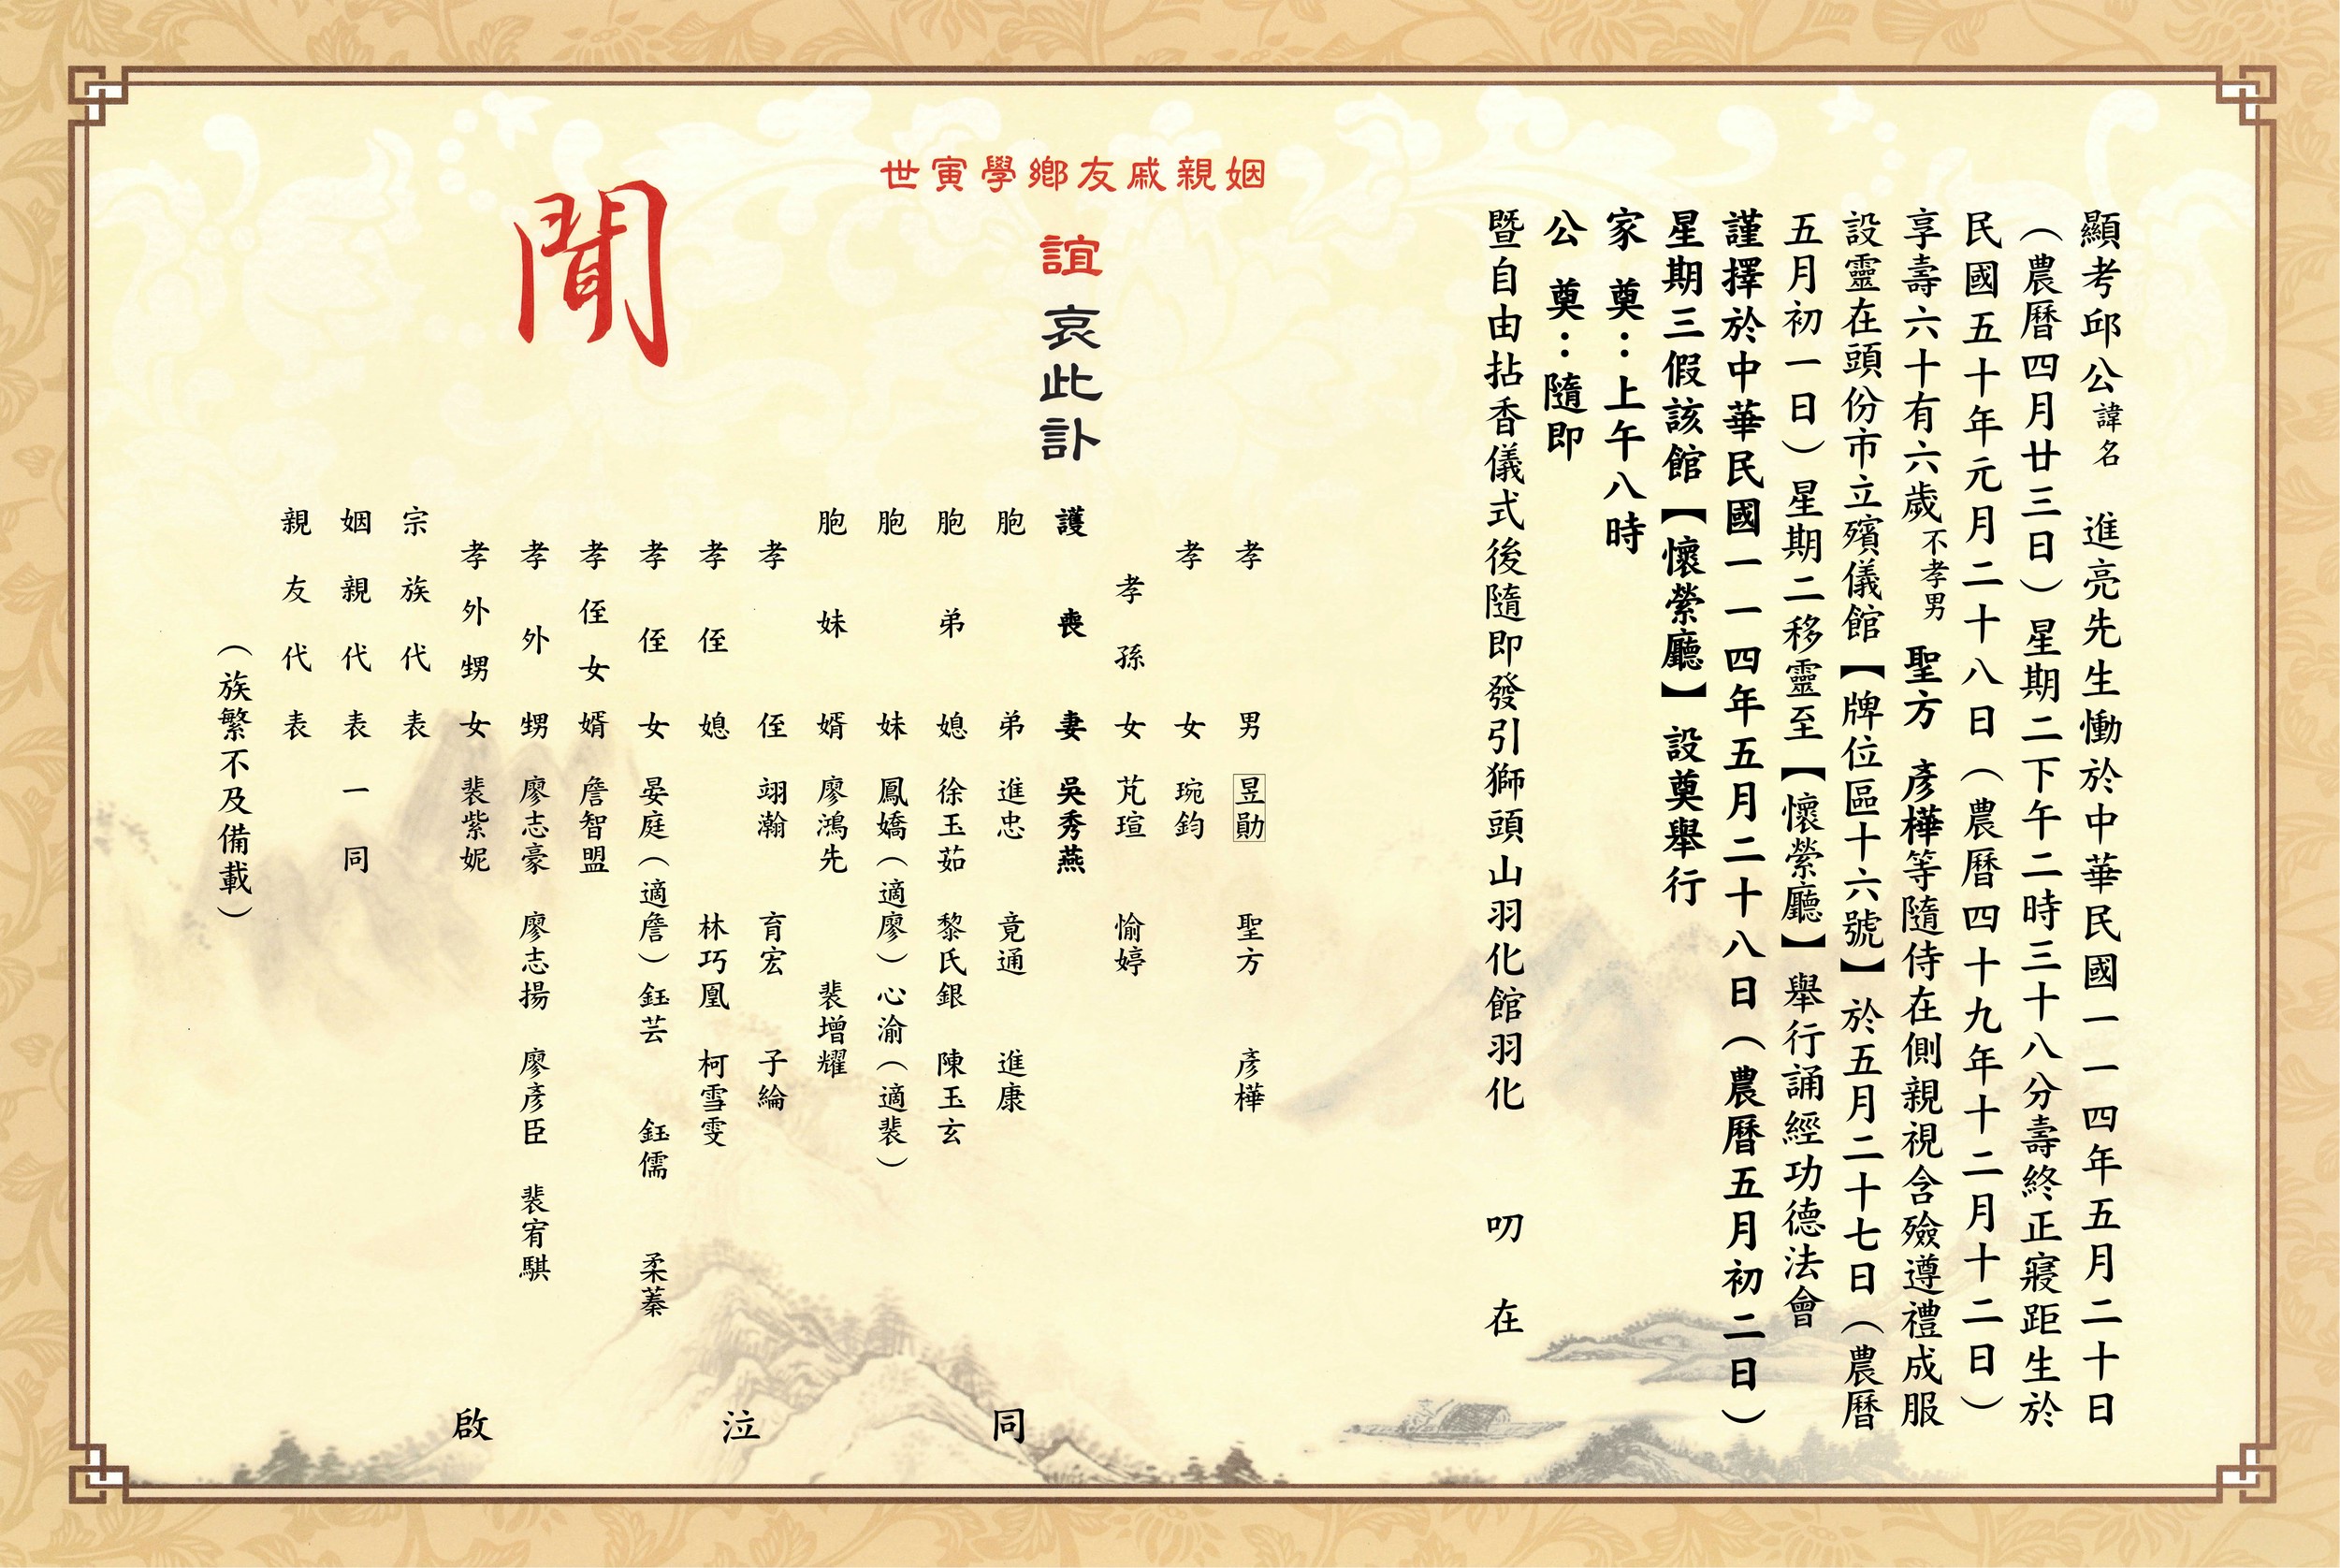 顯考邱公諱名　進亮先生慟於中華民國一一四年五月二十日
（農曆四月廿三日）星期二下午二時三十八分壽終正寢距生於
民國五十年元月二十八日（農曆四十九年十二月十二日）
享壽六十有六歲不孝男　聖方　彥樺等隨侍在側親視含殮遵禮成服
設靈在頭份市立殯儀館【牌位區十六號】於五月二十七日（農曆
五月初一日）星期二移靈至【懷縈廳】舉行誦經功德法會
謹擇於中華民國一一四年五月二十八日（農曆五月初二日）
星期三假該館【懷縈廳】設奠舉行
家　奠：上午八時
公　奠：隨即
暨自由拈香儀式後隨即發引獅頭山羽化館羽化　叨　在
姻親戚友鄉學寅世
誼　哀此訃
聞
孝　男　昱勛　聖方　彥樺
孝　女　琬鈞
孝孫女　芃瑄　愉婷
護喪妻　吳秀燕
胞　弟　進忠　竟通　進康
胞弟媳　徐玉茹　黎氏銀　陳玉玄
胞　妹　鳳嬌（適廖）心渝（適裴）
胞妹婿　廖鴻先　裴增耀
孝　侄　翊瀚　育宏　子綸
孝侄媳　林巧凰　柯雪雯
孝侄女　晏庭（適詹）鈺芸　鈺儒　柔蓁
孝侄女婿　詹智盟
孝外甥　廖志豪　廖志揚　廖彥臣　裴宥騏
孝外甥女　裴紫妮
宗族代表
姻親代表　一同
親友代表
（族繁不及備載）
同　泣　啟